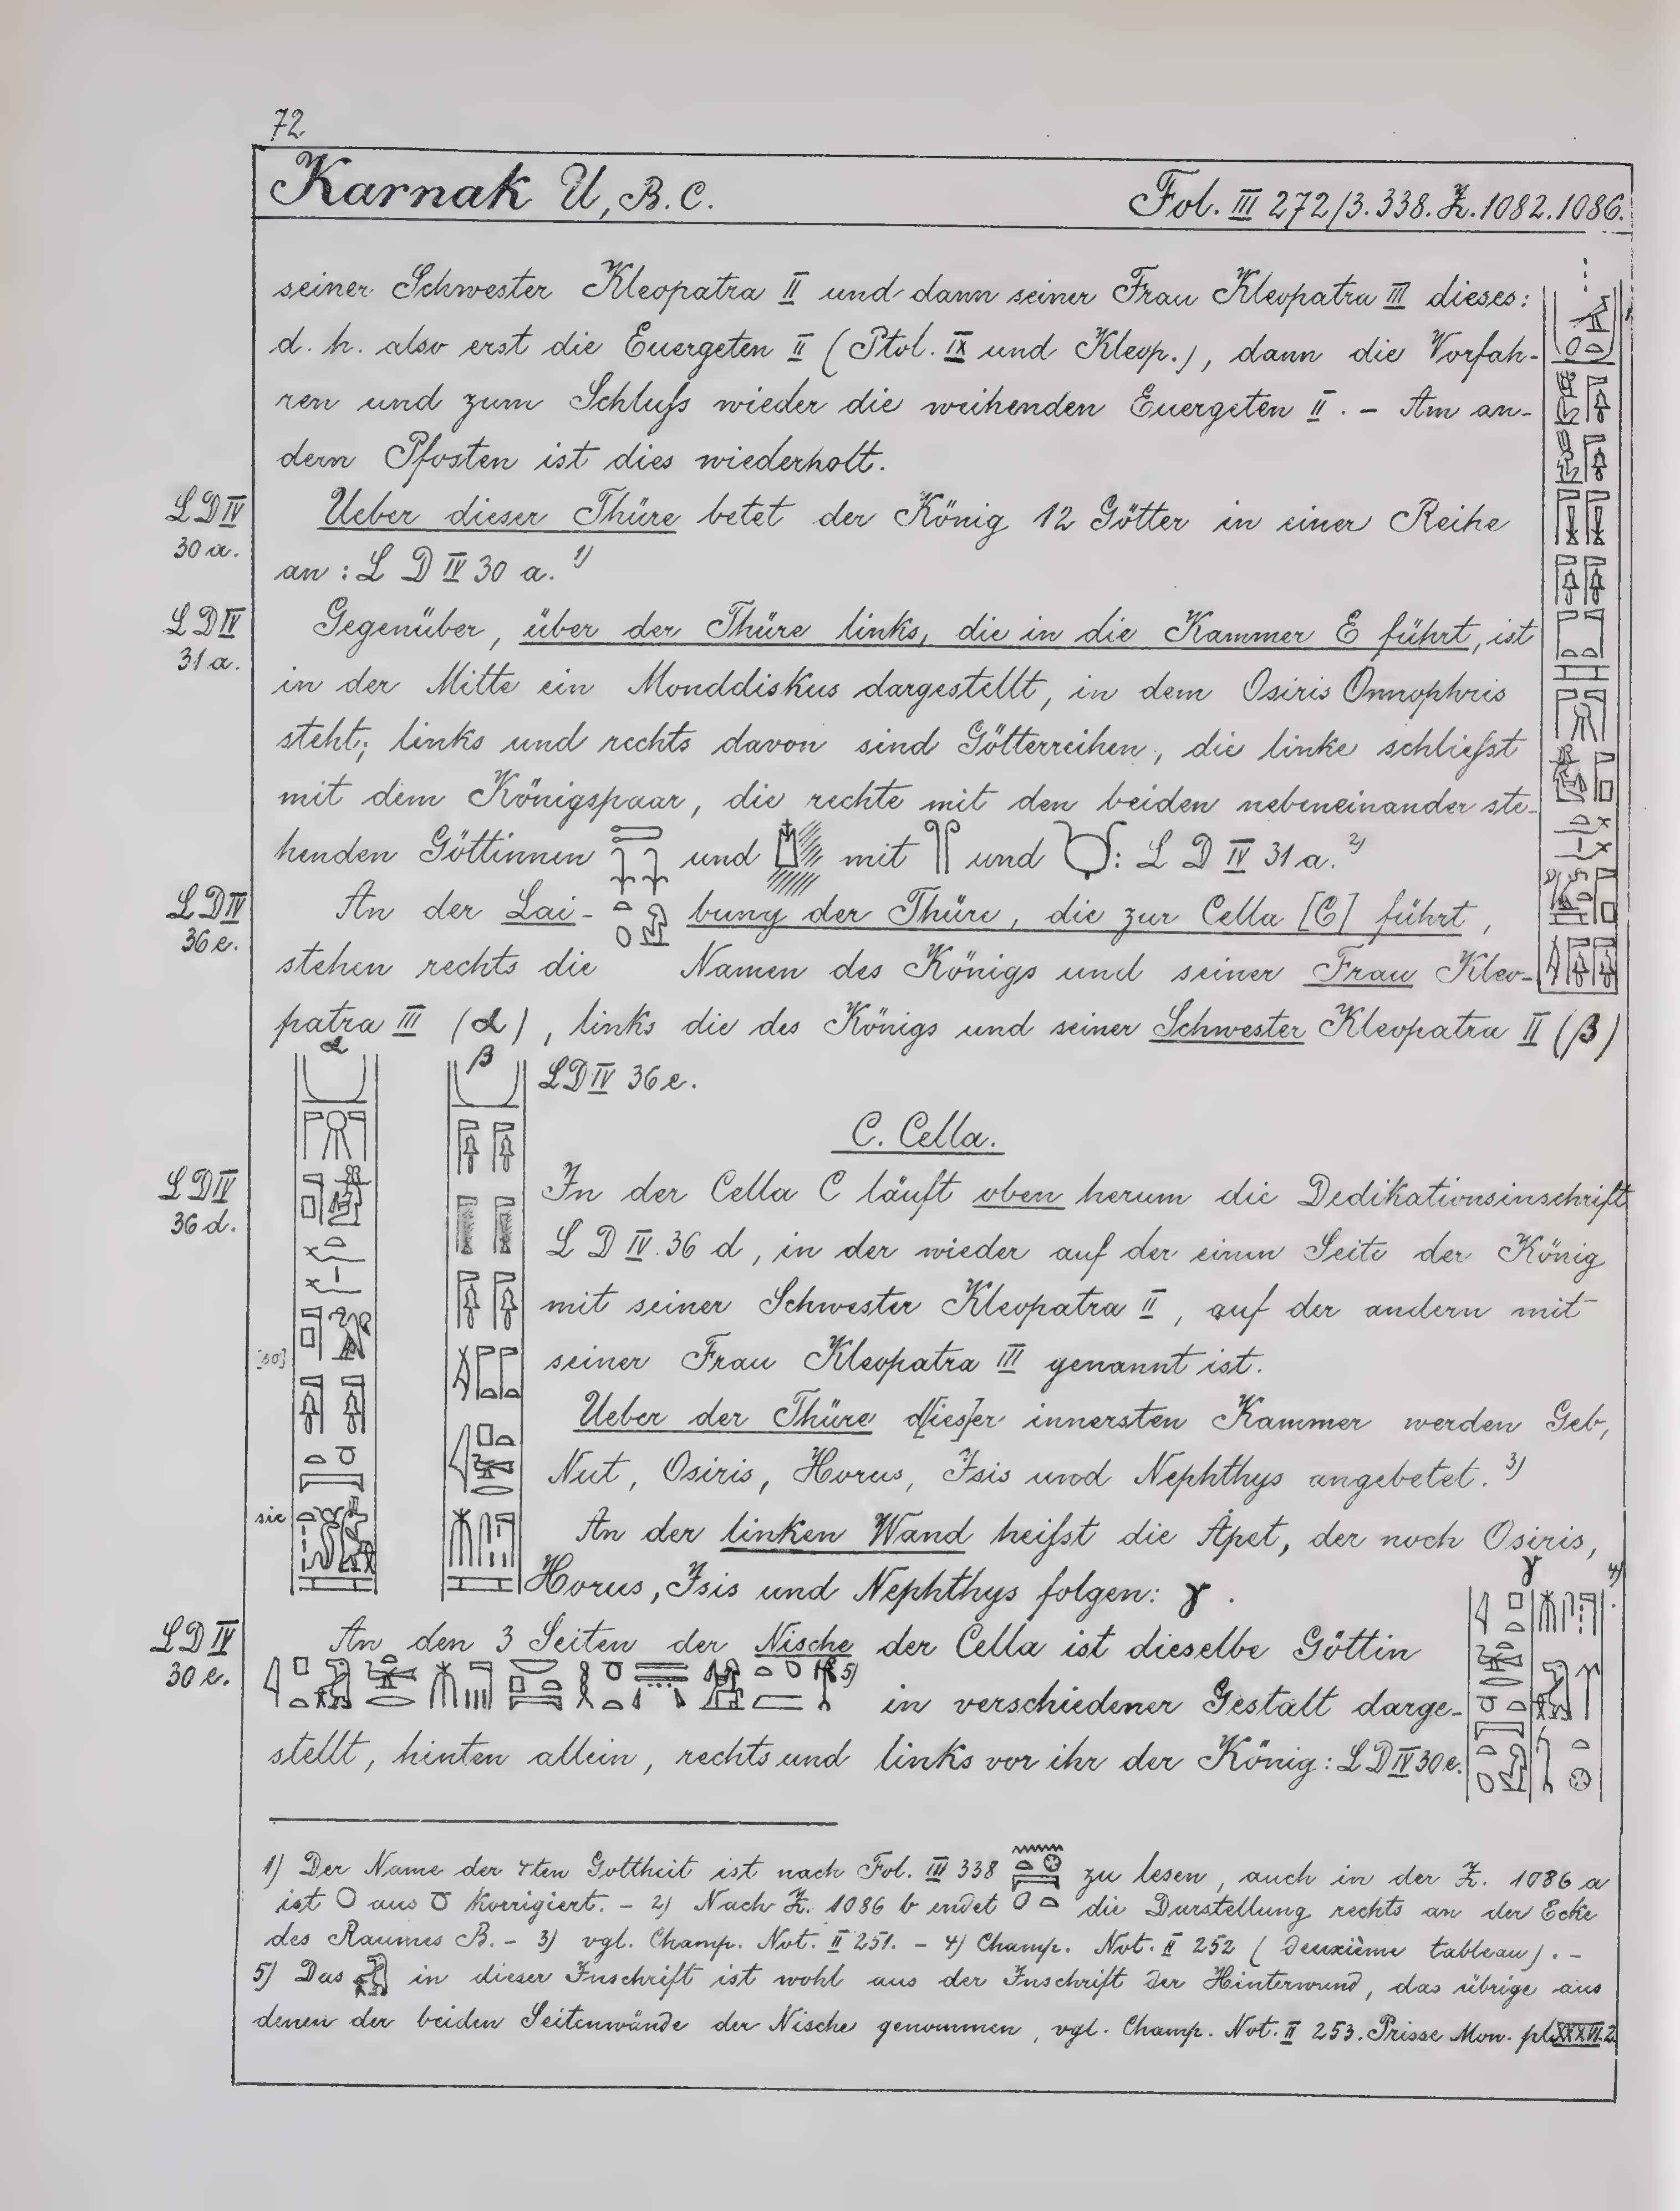 72
Karnak U, B. C.
Fol. III 272/3. 338. Z. 1082. 1086.
seiner Schwester Kleopatra II und dann seiner Frau Kleopatra III dieses:
d. h. also erst die Euergeten II (Ptol. IX und Kleop.), dann die Vorfah-
ren und zum Schluſs wieder die weihenden Euergeten II. – Am an-
dern Pfosten ist dies wiederholt.
LD IV
30 a.
Ueber dieser Thüre betet der König 12 Götter in einer Reihe
an: L D IV 30 a. 1)
LD IV
31 a.
Gegenüber, über der Thüre links, die in die Kammer E führt, ist
in der Mitte ein Monddiskus dargestellt, in dem Osiris Onnophris
steht; links und rechts davon sind Götterreihen, die linke schlieſst
mit dem Königspaar, die rechte mit den beiden nebeneinander ste-
henden Göttinnen und mit und : L D IV 31 a. 2)
LD IV
36 e.
An der Lai- bung der Thüre, die zur Cella [C] führt,
stehen rechts die Namen des Königs und seiner Frau Kleo-
patra III (α), links die des Königs und seiner Schwester Kleopatra II (β)
α
β
LD IV 36 e.
C. Cella.
LD IV
36 d.
In der Cella C läuft oben herum die Dedikationsinschrift
L D IV. 36 d, in der wieder auf der einen Seite der König
mit seiner Schwester Kleopatra II, auf der andern mit
[so]
seiner Frau Kleopatra III genannt ist.
Ueber der Thüre d[ies]er innersten Kammer werden Geb,
Nut, Osiris, Horus, Isis und Nephthys angebetet. 3)
sic
An der linken Wand heiſst die Apet, der noch Osiris,
Horus, Isis und Nephthys folgen: γ.
γ 4)
LD IV
30 e.
An den 3 Seiten der Nische der Cella ist dieselbe Göttin
5) in verschiedener Gestalt darge-
stellt, hinten allein, rechts und links vor ihr der König: L D IV 30 e.
1) Der Name der 4ten Gottheit ist nach Fol. III 338 zu lesen, auch in der Z. 1086 a
ist aus korrigiert. – 2) Nach Z. 1086 b endet die Darstellung rechts an der Ecke
des Raumes B. – 3) vgl. Champ. Not. II 251. – 4) Champ. Not. II 252 (deuxième tableau). –
5) Das in dieser Inschrift ist wohl aus der Inschrift der Hinterwand, das übrige aus
denen der beiden Seitenwände der Nische genommen, vgl. Champ. Not. II 253. Prisse Mon. pl. XXXVI. 2